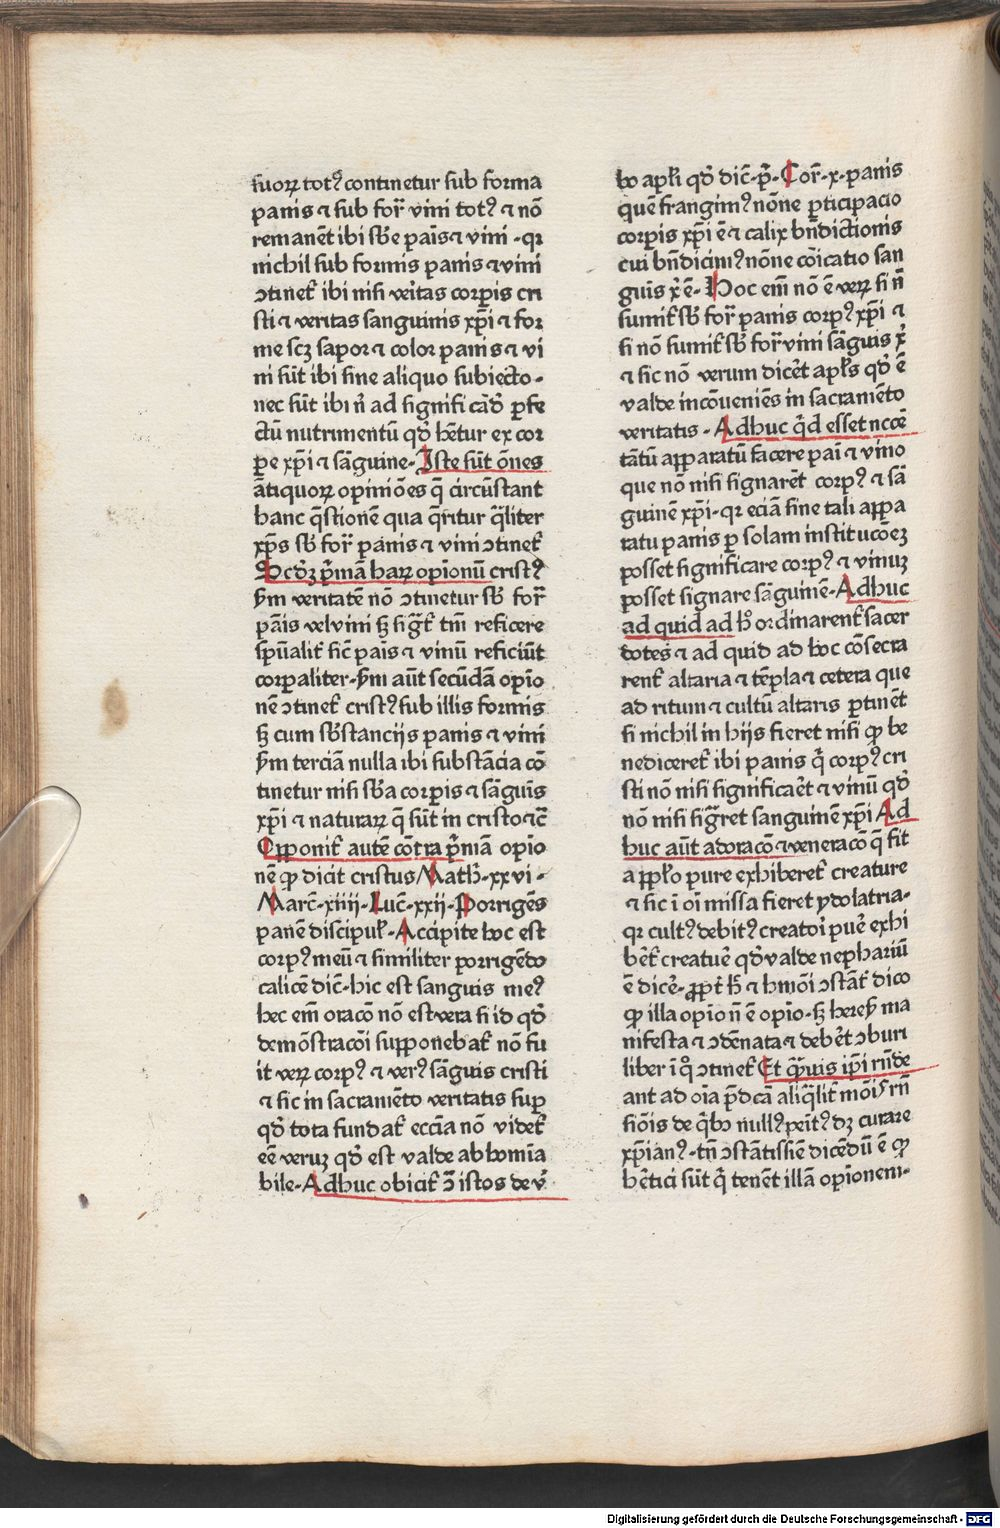 suoꝝ totꝰ continetur sub forma
panis ⁊ sub for̄ vini totꝰ ⁊ nō
remanēt ibi sb̄e pāis ⁊ vini ·qꝛ
nichil sub formis panis ⁊ vini
ↄtinet᷑ ibi nisi veritas corpis cri
sti ⁊ veritas sanguinis xp̄i ⁊ for
me scꝫ sapor ⁊ color panis ⁊ vi
ni sūt ibi sine aliquo subiecto·
nec sūt ibi n̄ ad signifi cādū ꝑfe
ctū nutrimentū qd̄ hētur ex cor
pe xp̄i ⁊ sāguine· Iste sūt ōnes
ātiquoꝝ opiniōes q̄ circūstant
hanc q̄stionē qua q̄ritur q̄liter
xp̄s sb̄ for̄ panis ⁊ vini ↄtinet᷑
Scd̄ꝫ p̄mā haꝝ opīonū cristꝰ
ẜm veritatē nō ↄtinetur sb̄ for̄
pāis vel vini sꝫ sigt᷑ tm̄ reficere
spūalit᷑ sic̄ pāis ⁊ vinū reficiūt
corꝑaliter·ẜm aūt secūdā opīo
nē ↄtinet᷑ cristꝰ sub illis formis
sꝫ cum sb̄stancijs panis ⁊ vini
ẜm terciā nulla ibi substācia cō
tinetur nisi sb̄a corpis ⁊ sāguīs
xp̄i ⁊ naturaꝝ q̄ sūt in cristo ⁊c̄
Opponit᷑ autē cōtra p̄mā opīo
nē ꝙ dicit cristus Math̄·xxvi·
Marc̄·xiiii·Luc̄·xxii·Porrigēs
panē discipul᷑·Accipite hoc est
corpꝰ meū ⁊ similiter porrigēdo
calicē dic̄·hic est sanguis meꝰ
hec em̄ oracō nō est vera si id qd̄
demōstracōi supponebat᷑ nō fu
it veꝝ corpꝰ ⁊ verꝰ sāguis cristi
⁊ sic in sacramēto veritatis suꝑ
qd̄ tota fundat᷑ eccīa nō videt᷑
eē veruꝫ qd̄ est valde abhomīa
bile·Adhuc obicit᷑ ↄ̄ istos de ṽ
bo apl̄i qd̄ dic̄·p̄·Cor̄·x·panis
quē frangimꝰ nōne ꝑticipacio
corpis xp̄i ē ⁊ calix bn̄dictionis
cui bn̄dicimꝰ nōne cōicatio san
guis x̄ ē·Hoc em̄ nō ē veꝝ si n̄
sumit᷑ sb̄ for̄ panis corpꝰ xp̄i ⁊
si nō sumit᷑ sb̄ for̄ vini sāguis x̄
⁊ sic nō verum dicēt apl̄s qd̄ ē
valde incōueniēs in sacramēto
veritatis·Adhuc q̄d esset nccē
tātū apparatū facere paīs ⁊ vino
que nō nisi signarēt corpꝰ ⁊ sā
guinē xp̄i·qꝛ eciā sine tali appa
ratu panis ꝑ solam institucōeꝫ
posset significare corpꝰ ⁊ vinuꝫ
posset signare sāguinē·Adhuc
ad quid ad hͦ ordinarent᷑ sacer
dotes ⁊ ad quid ad hoc cōsecra
rent᷑ altaria ⁊ tēpla ⁊ cetera que
ad ritum ⁊ cultū altaris ꝑtinēt
si nichil in hijs fieret nisi ꝙ be
nediceret᷑ ibi panis q̄ corpꝰ cri
sti nō nisi significaēt ⁊ vinū qd̄
nō nisi sigret sanguinē xp̄i Ad
huc aūt adoracō ⁊ veneracō q̄ fit
a pplo pure exhiberet᷑ creature
⁊ sic ī oī missa fieret ydolatria·
qꝛ cultꝰ debitꝰ creatoī puē exhi
bēt᷑ creatuē qd̄ valde nephariū
ē dicē·ꝓpt᷑ h̄ ⁊ hmōi ↄstāt᷑ dico
ꝙ illa opīo n̄ ē opīo·sꝫ heresis ma
nifesta ⁊ ↄdēnata ⁊ debēt ↄburi
liber ī qͦ ↄtinet᷑ Et q̄uis ip̄i rn̄de
ant ad oīa p̄dcā aliq̄lit᷑ mōi rn̄
siōis de q̄bꝰ nullꝰ peitꝰ dꝫ curare
xp̄ianꝰ·tn̄ ↄstātissīe dicēdū ē ꝙ
hētici sūt q̄ tenēt illā opīonem·
Digitalisierung gefördert durch die Deutsche Forschungsgemeinschaft - DFG